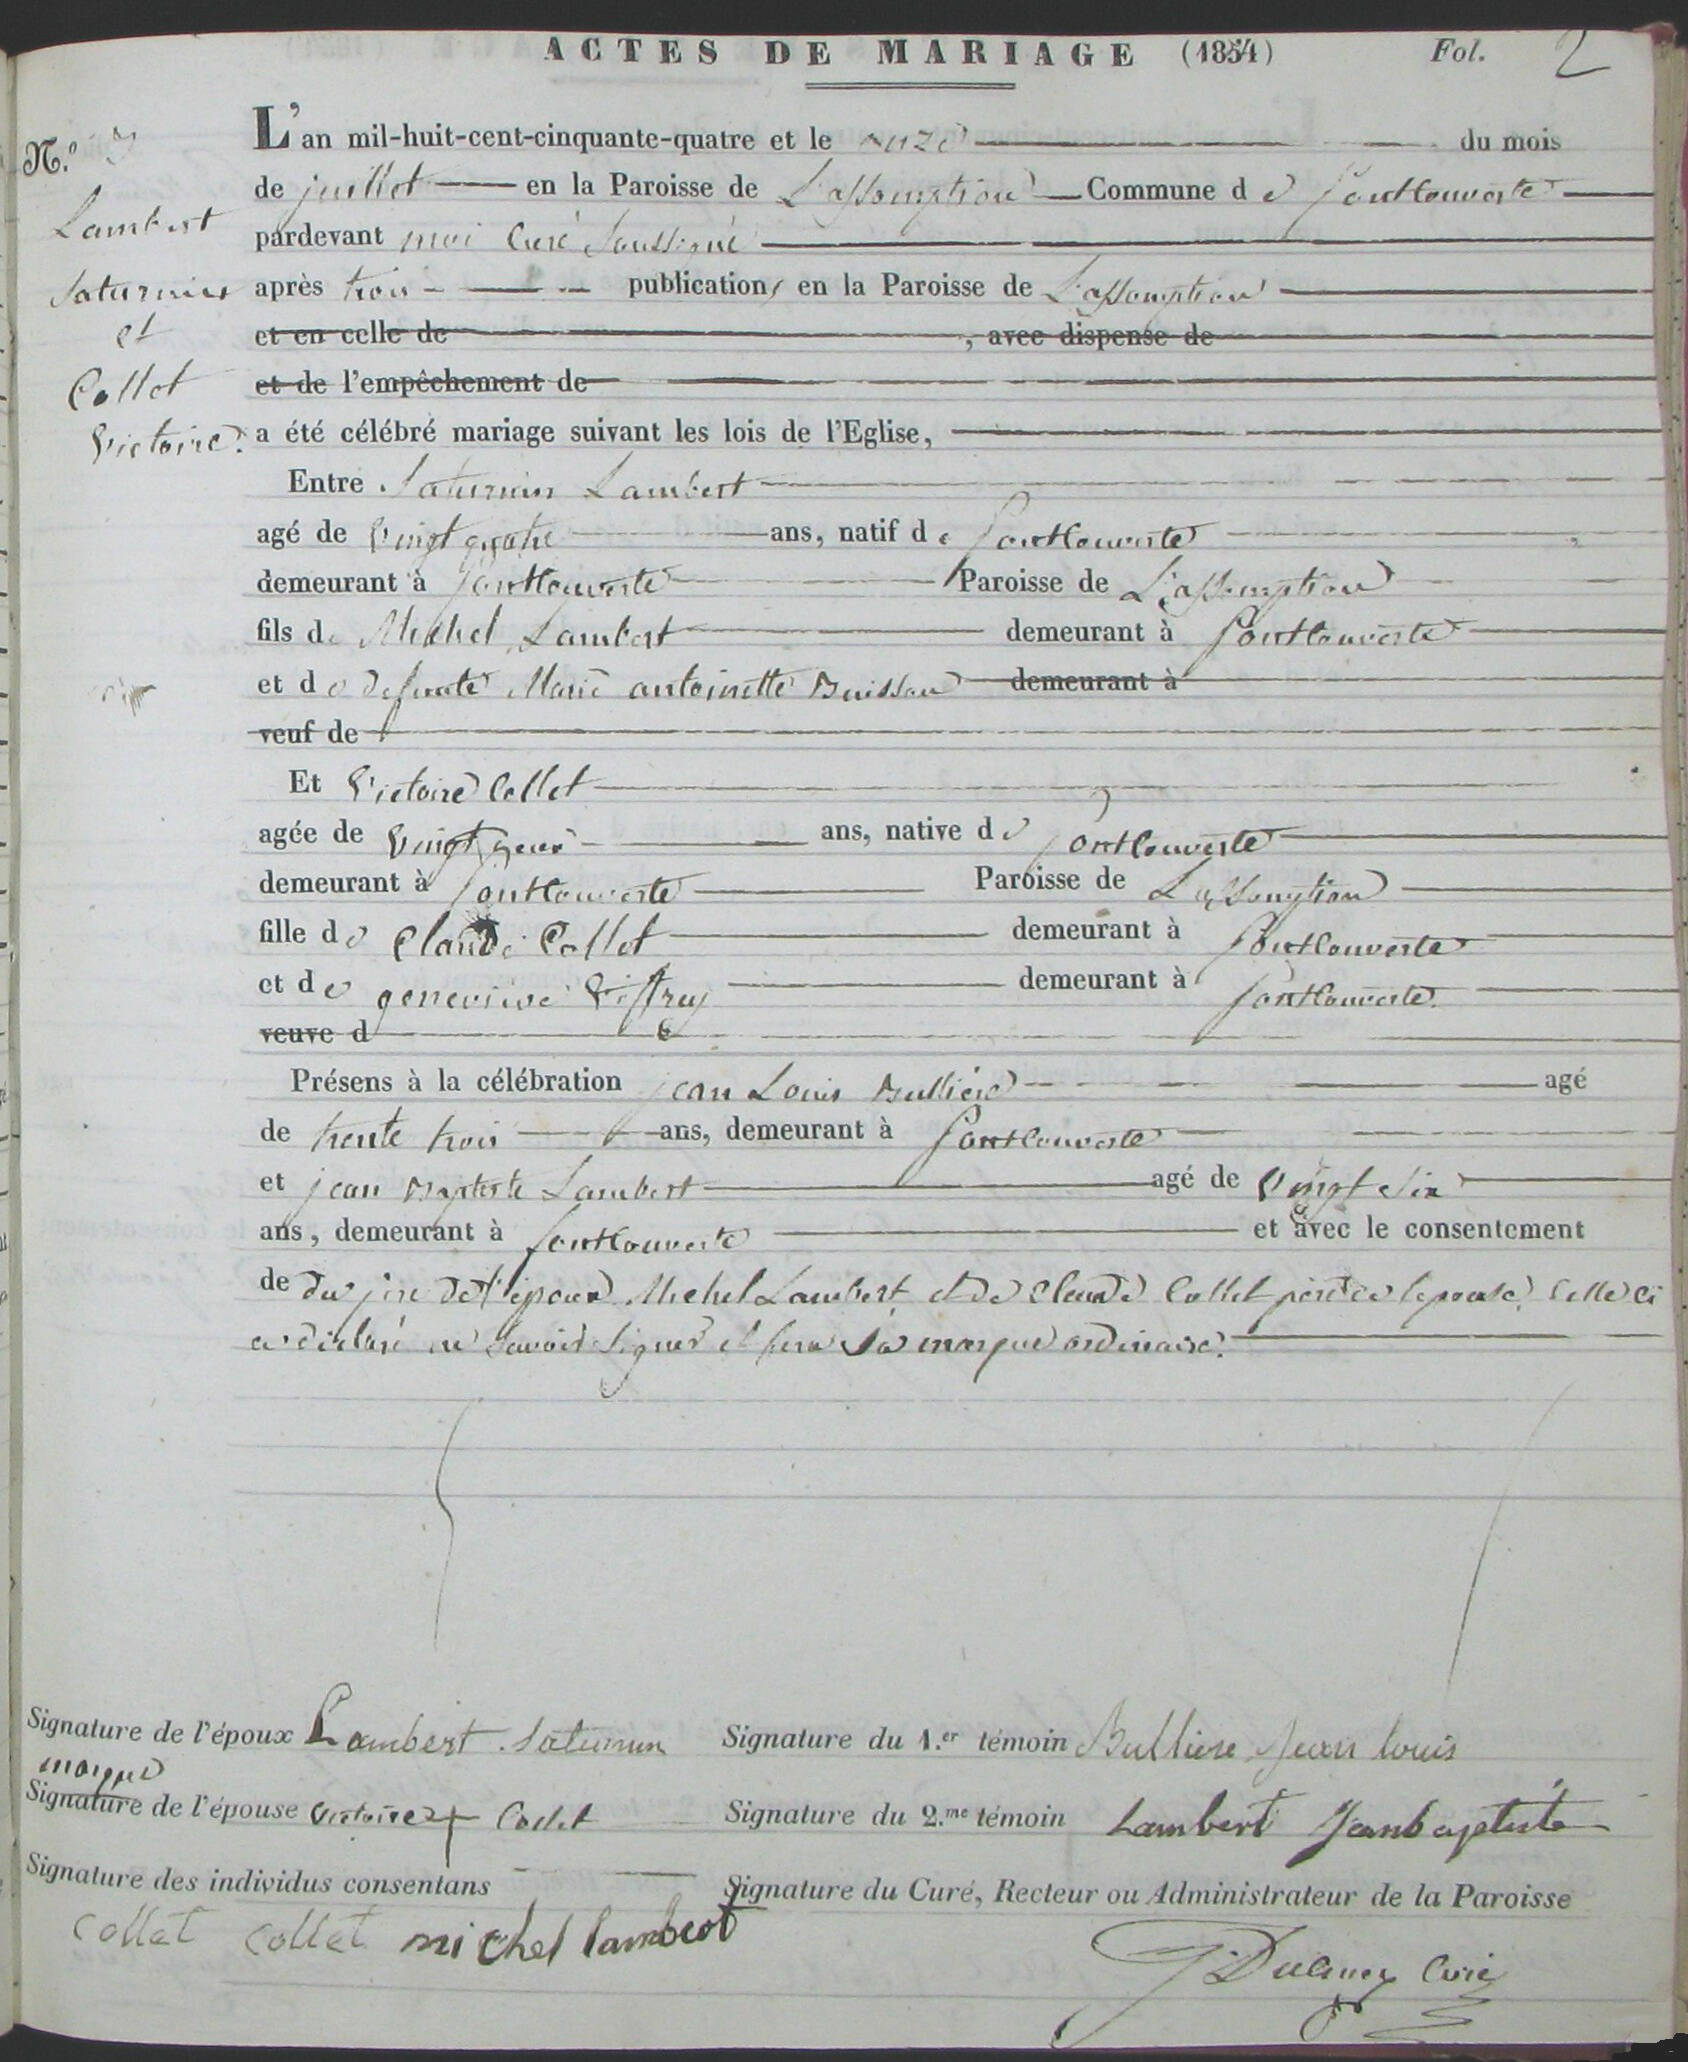 ACTES DE MARIAGE (1854) Fol. 2
N.º 3
Lambert
Saturnin
et
Collet
Victoire.
L'an mil-huit-cent-cinquante-quatre et le onze du mois
de juillet en la Paroisse de L'assomption Commune d e Pontlouverte
pardevant moi Curé Soussigné
après trois publications en la Paroisse de L'assomption
et en celle de , avec dispense de
et de l'empêchement de
a été célébré mariage suivant les lois de l'Eglise,
Entre Saturnin Lambert
agé de Vingt quatre ans, natif d e
demeurant à Paroisse de L'assomption
fils de Michel Lambert demeurant à
et d e defunte Marie antoinette Buisson demeurant à
veuf de
Et Victoire Collet
agée de Vingt deux ans, native d e
demeurant à Paroisse de L'assomption
fille d e Claude Collet demeurant à
et d e genevieve demeurant à
veuve d
Présens à la célébration jean Louis Bulliere agé
de trente trois ans, demeurant à
et jean Baptiste Lambert agé de Vingt six
ans, demeurant à et avec le consentement
de du père de l'epoux Michel Lambert et de Claude Collet père de l'epouse. Celle ci
a déclaré ne Savoir Signer et fera Sa marque ordinaire.
Signature de l'époux Lambert Saturnin
Signature du 1.er témoin Bulliere Jean louis
marque
Signature de l'épouse Victoire + Collet
Signature du 2.me témoin Lambert Jeanbaptiste
Signature des individus consentans
Signature du Curé, Recteur ou Administrateur de la Paroisse
Collet Collet michel lambert
Curé